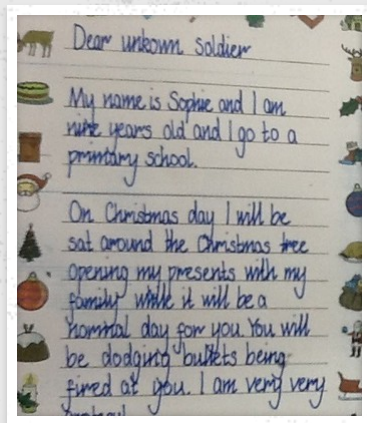 Dear unkown soldier
My name is Sophie and I am
nine years old and I go to a
primary school.
On Christmas day I will be
sat around the Christmas tree
opening my presents with my
family while it will be a
normal day for you. You will
be dodging bullets being
fired at you. I am very very